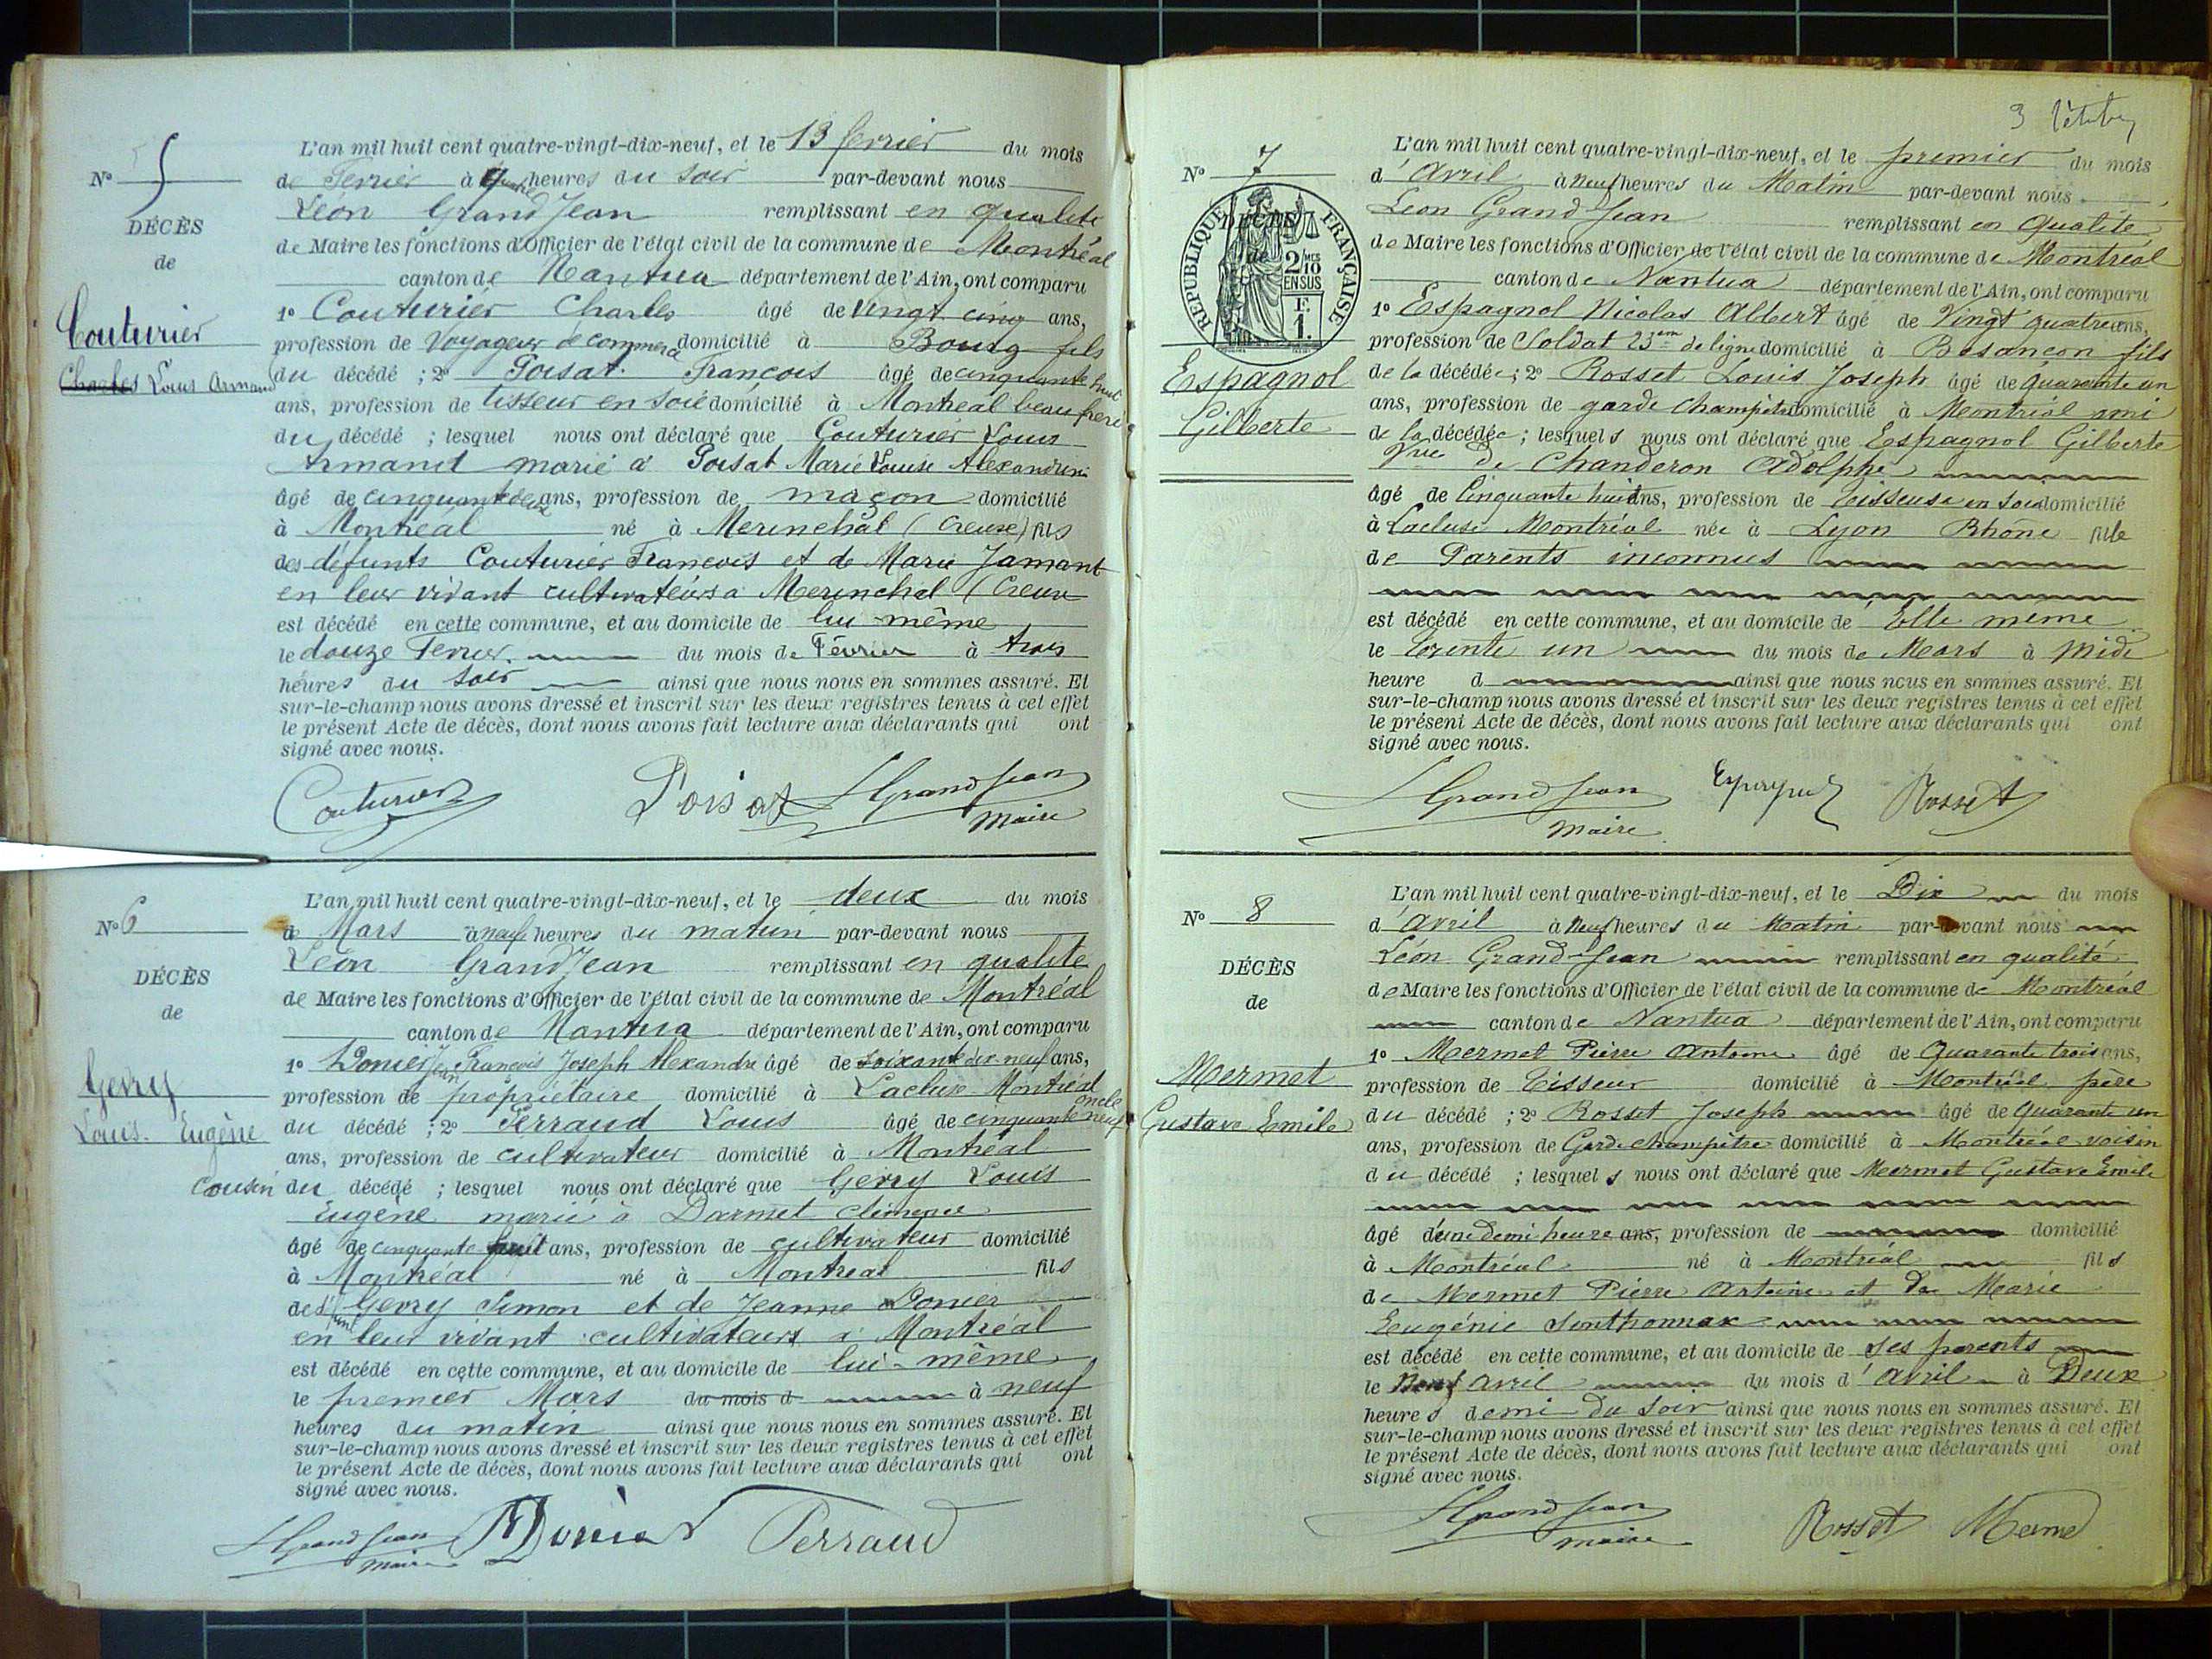 N° 5
DÉCÈS
de
Couturier
Charles Louis Armand
L'an mil huit cent quatre-vingt-dix-neuf, et le 13 fevrier du mois
de Fevrier à quatre heures du soir par-devant nous
Léon GrandJean remplissant en qualité
de Maire les fonctions d'Officier de l'état civil de la commune de Montréal
canton de Nantua département de l'Ain, ont comparu
1° Couturier Charles âgé de Vingt cinq ans,
profession de Voyageur de commerce domicilié à Bourg fils
du décédé ; 2° Poisat François âgé de cinquante huit
ans, profession de tisseur en soie domicilié à Montreal beau frere
du décédé ; lesquel nous ont déclaré que Couturier Louis
Armand marié à Poisat Marie Louise Alexandrine
âgé de cinquante deux ans, profession de maçon domicilié
à Montreal né à Merinchal (Creuse) fils
des défunts Couturier Francois et de Marie Jamant
en leur vivant cultivateurs a Merinchal (Creuse
est décédé en cette commune, et au domicile de lui-même
le douze Fevrier. du mois de Février à trois
heures du soir ainsi que nous nous en sommes assuré. Et
sur-le-champ nous avons dressé et inscrit sur les deux registres tenus à cet effet
le présent Acte de décès, dont nous avons fait lecture aux déclarants qui ont
signé avec nous.
Couturier Poisat LGrandJean
Maire
N° 6
DÉCÈS
de
Gerry
Louis. Eugène
L'an mil huit cent quatre-vingt-dix-neuf, et le deux du mois
de Mars à neuf heures du matin par-devant nous
Léon GrandJean remplissant en qualité
de Maire les fonctions d'Officier de l'état civil de la commune de Montréal
canton de Nantua département de l'Ain, ont comparu
1° Donier Jean François Joseph Alexandre âgé de soixante dix-neuf ans,
profession de propriétaire domicilié à Lacluse Montréal oncle
du décédé ; 2° Perraud Louis âgé de cinquante neuf
ans, profession de cultivateur domicilié à Montréal
Cousin du décédé ; lesquel nous ont déclaré que Gerry Louis
Eugène marié à Darmet
âgé de cinquante huit ans, profession de cultivateur domicilié
à Montréal né à Montreal fils
de Gerry Simon et de Jeanne Donier
en leur vivant cultivateurs à Montréal
est décédé en cette commune, et au domicile de lui-même
le premier Mars du mois d à neuf
heures du matin ainsi que nous nous en sommes assuré. Et
sur-le-champ nous avons dressé et inscrit sur les deux registres tenus à cet effet
le présent Acte de décès, dont nous avons fait lecture aux déclarants qui ont
signé avec nous.
LGrandJean Donier Perraud
maire
3
N° 7
DÉCÈS
de
RÉPUBLIQUE FRANÇAISE
2/10 MES
EN SUS
F.
1.
Espagnol
Gilberte
L'an mil huit cent quatre-vingt-dix-neuf, et le premier du mois
d'Avril à neuf heures du Matin par-devant nous
Léon Grand Jean remplissant en qualité
de Maire les fonctions d'Officier de l'état civil de la commune de Montréal
canton de Nantua département de l'Ain, ont comparu
1° Espagnol Nicolas Albert âgé de Vingt quatre ans,
profession de Soldat 23em de ligne domicilié à Besancon fils
de la décédée ; 2° Rosset Louis Joseph âgé de quarante un
ans, profession de garde champêtre domicilié à Montréal ami
de la décédée ; lesquels nous ont déclaré que Espagnol Gilberte
Vve De Chanderon Adolphe
âgé de Cinquante huit ans, profession de Tisseuse en soie domicilié
à Lacluse Montréal née à Lyon Rhône fille
de Parents inconnus
est décédé en cette commune, et au domicile de Elle meme
le Trente un du mois de Mars à Midi
heure d ainsi que nous nous en sommes assuré. Et
sur-le-champ nous avons dressé et inscrit sur les deux registres tenus à cet effet
le présent Acte de décès, dont nous avons fait lecture aux déclarants qui ont
signé avec nous.
LGrandJean Espagnol Rosset
Maire
N° 8
DÉCÈS
de
Mermet
Gustave Emile
L'an mil huit cent quatre-vingt-dix-neuf, et le Dix du mois
d'avril à Neuf heures du Matin par-devant nous
Léon Grand-Jean remplissant en qualité
de Maire les fonctions d'Officier de l'état civil de la commune de Montréal
canton de Nantua département de l'Ain, ont comparu
1° Mermet Pierre Antoine âgé de Quarante trois ans,
profession de Tisseur domicilié à Montréal père
du décédé ; 2° Rosset Joseph âgé de Quarante un
ans, profession de Garde champêtre domicilié à Montréal voisin
du décédé ; lesquels nous ont déclaré que Mermet Gustave Emile
âgé d'une demi heure ans, profession de domicilié
à Montréal né à Montréal fils
de Mermet Pierre Antoine et De Marie
Eugénie Sonthonnax
est décédé en cette commune, et au domicile de ses parents
le Neuf avril du mois d'avril à Deux
heures demi du soir ainsi que nous nous en sommes assuré. Et
sur-le-champ nous avons dressé et inscrit sur les deux registres tenus à cet effet
le présent Acte de décès, dont nous avons fait lecture aux déclarants qui ont
signé avec nous.
LGrandJean Rosset Mermet
maire